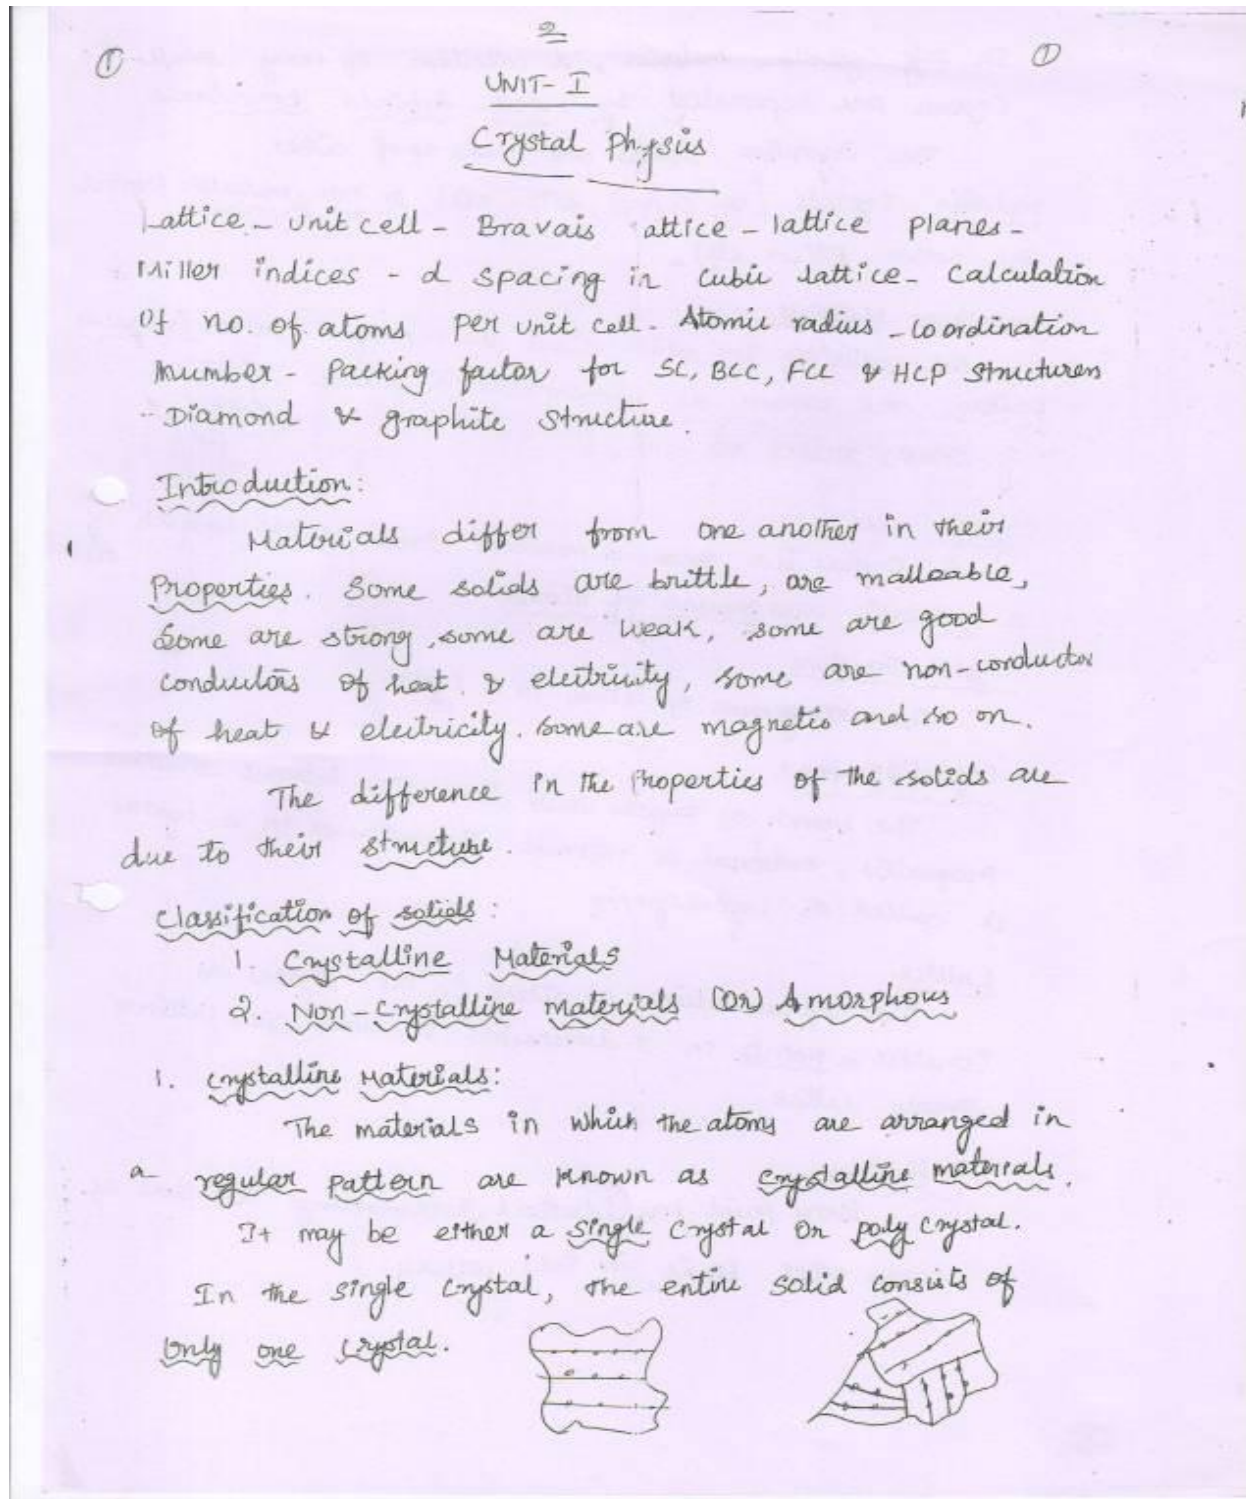 2
① ①
UNIT- I
Crystal Physics
Lattice - Unit cell - Bravais attice - lattice planes -
Miller indices - d spacing in cubic lattice - Calculation
of no. of atoms per unit cell - Atomic radius - Coordination
number - Packing factor for SC, BCC, FCC & HCP structures
- Diamond & graphite structure.
Introduction:
Materials differ from one another in their
Properties. Some solids are brittle, are malleable,
some are strong, some are weak, some are good
conductors of heat & electricity, some are non-conductor
of heat & electricity. some are magnetic and so on.
The difference in the Properties of the solids are
due to their structure.
Classification of solids:
1. Crystalline Materials
2. Non-Crystalline materials (or) Amorphous
1. Crystalline Materials:
The materials in which the atoms are arranged in
a regular pattern are known as crystalline materials.
It may be either a single crystal or poly crystal.
In the single crystal, the entire solid consists of
only one crystal.